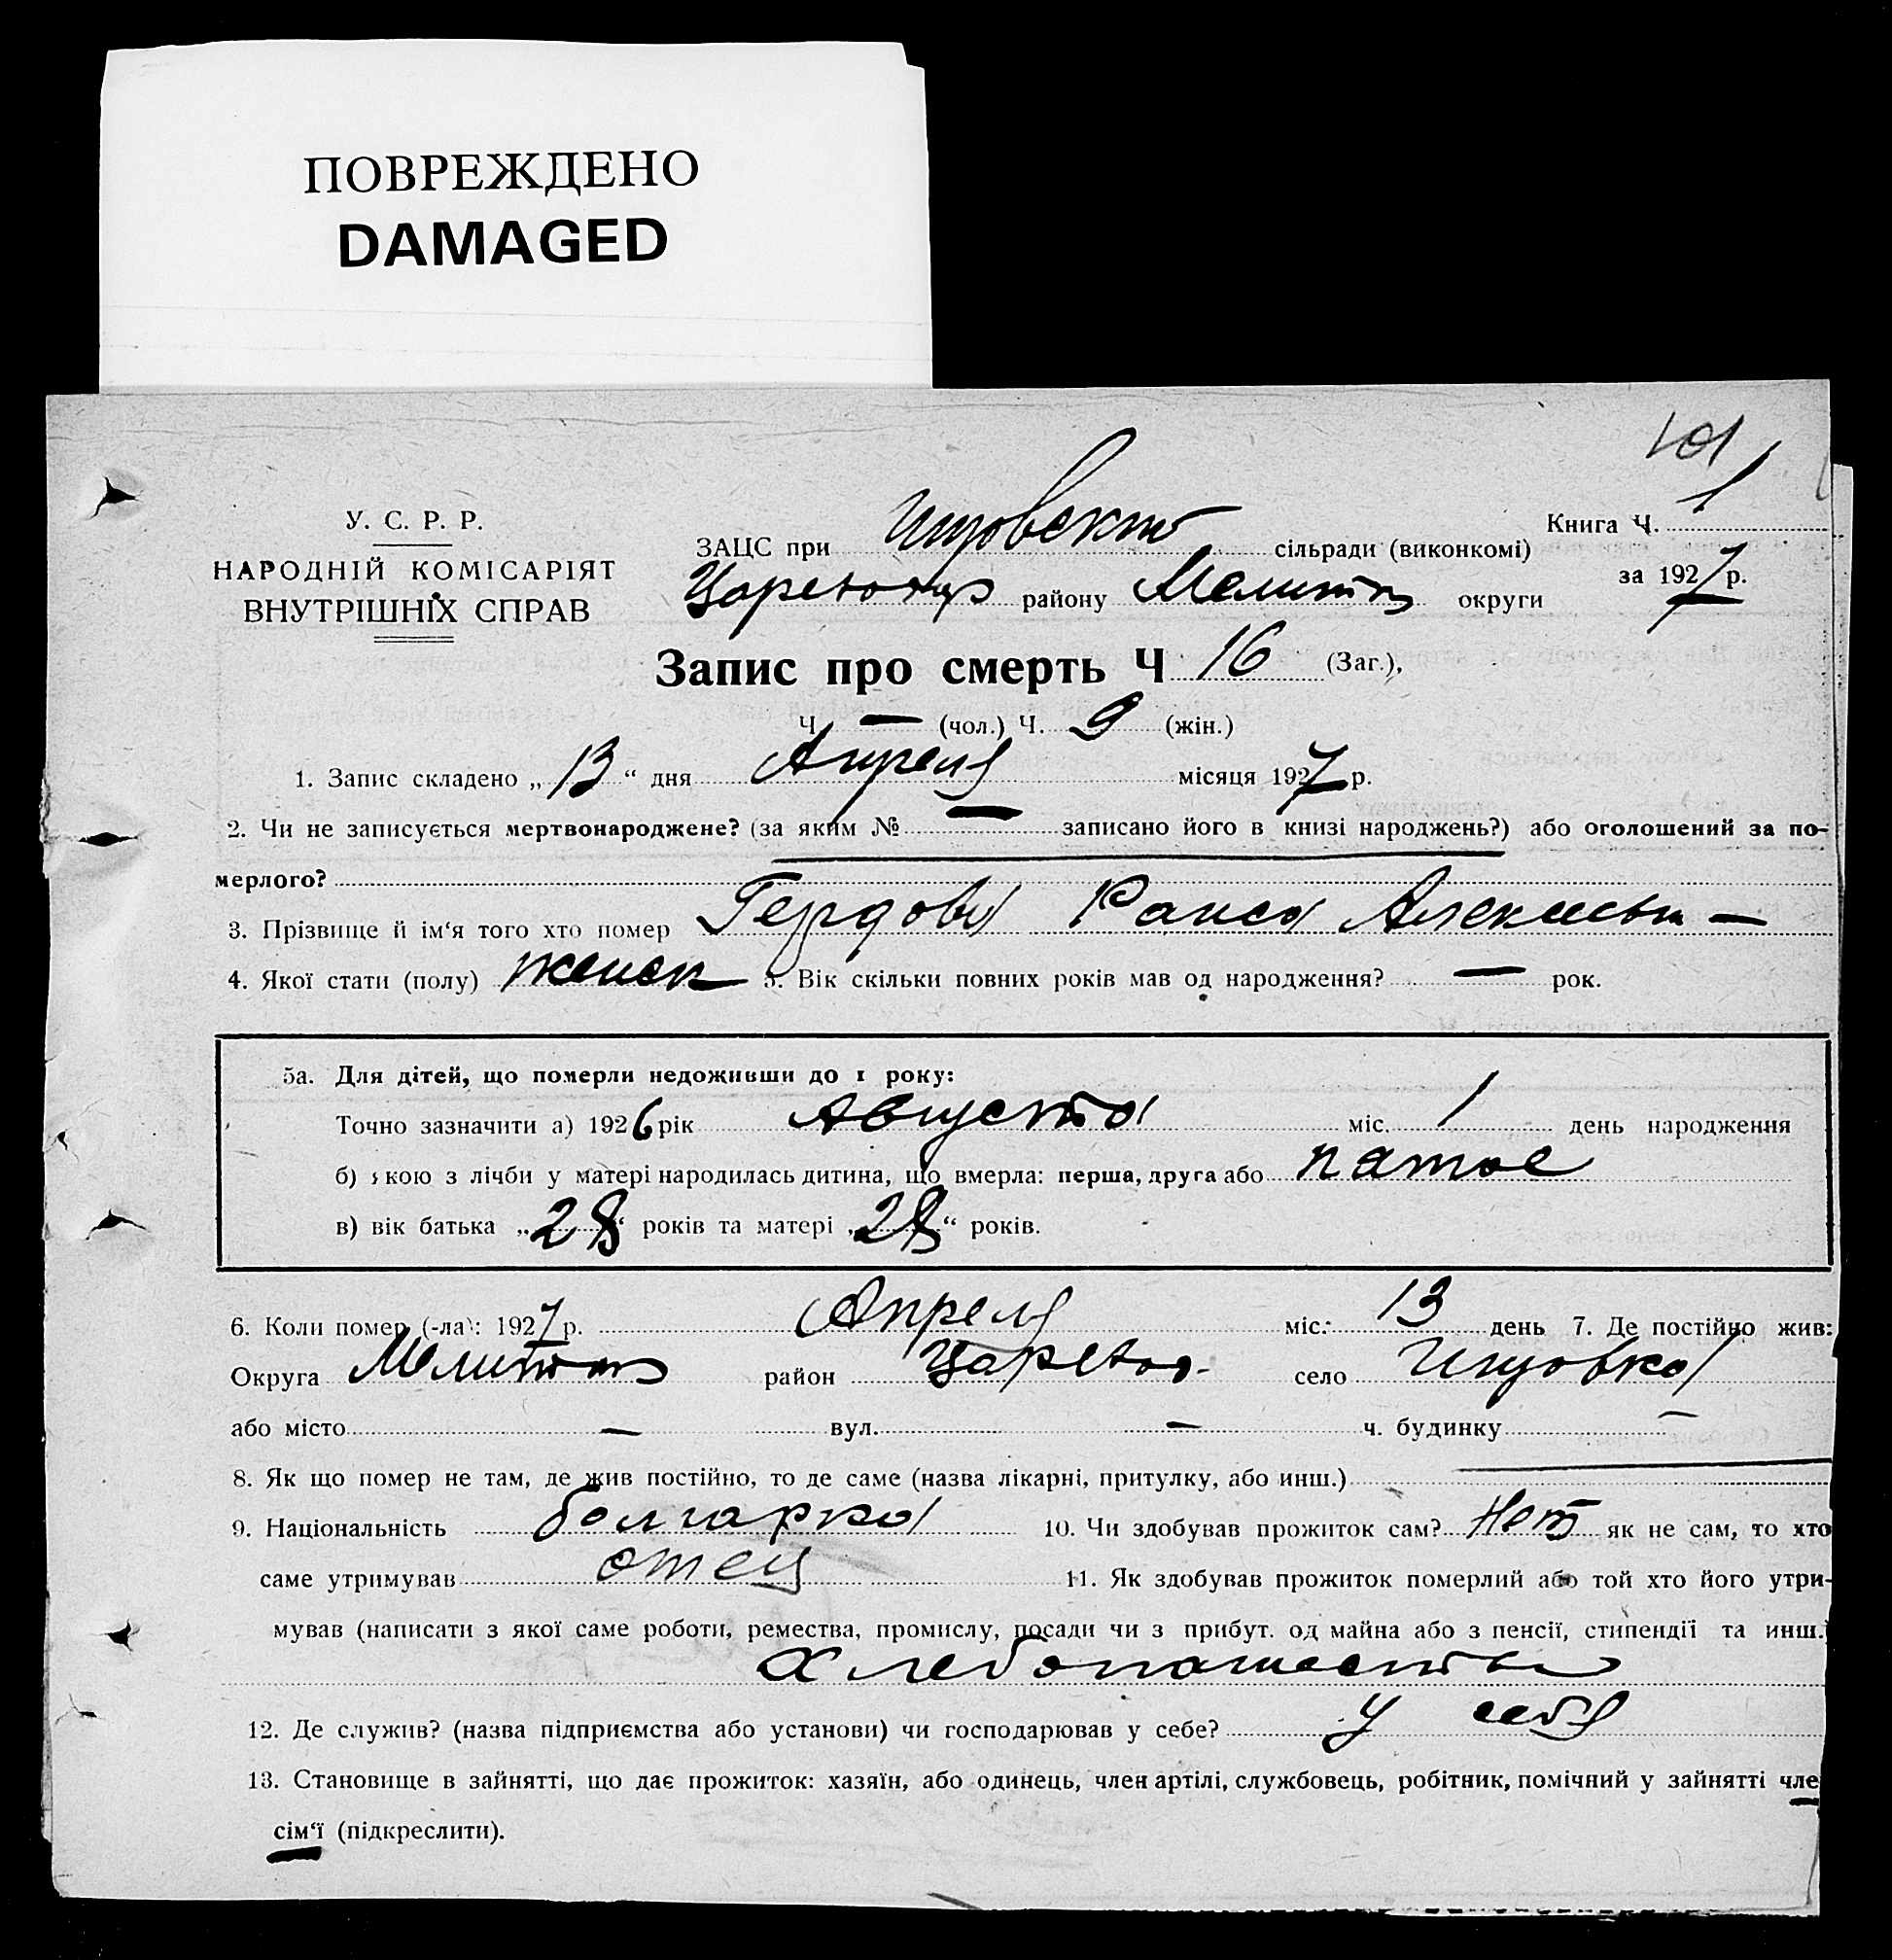 ПОВРЕЖДЕНО
DAMAGED
101
У. С. Р. Р.
НАРОДНІЙ КОМІСАРІЯТ
ВНУТРІШНІХ СПРАВ
Книга Ч. 1
ЗАЦС при сільради (виконкомі)
за 1927 р.
району Мелит округи
Запис про смерть Ч 16 (Заг.),
Ч. — (чол.) Ч. 9 (жін.)
1. Запис складено „13“ дня Апреля місяця 1927 р.
2. Чи не записується мертвонароджене? (за яким № — записано його в книзі народжень?) або оголошений за по-
мерлого?
3. Прізвище й ім‘я того хто помер Раиса Алексеевн —
4. Якої стати (полу) женск 5. Вік скільки повних років мав од народження? — рок.
5а. Для дітей, що померли недоживши до 1 року:
Точно зазначити а) 1926 рік Августа міс. 1 день народження
б) якою з лічби у матері народилась дитина, що вмерла: перша, друга або пятое
в) вік батька „28“ років та матері „28“ років.
6. Коли помер (-ла): 1927 р. Апреля міс. 13 день 7. Де постійно жив:
Округа район село
або місто — вул. — ч. будинку —
8. Як що помер не там, де жив постійно, то де саме (назва лікарні, притулку, або инш.)
9. Національність болгарка 10. Чи здобував прожиток сам? Нет як не сам, то хто
саме утримував отец 11. Як здобував прожиток померлий або той хто його утри-
мував (написати з якої саме роботи, ремества, промислу, посади чи з прибут. од майна або з пенсії, стипендії та инш.)
Хлебопашество
12. Де служив? (назва підприємства або установи) чи господарював у себе? У себя
13. Становище в зайнятті, що дає прожиток: хазяїн, або одинець, член артілі, службовець, робітник, помічний у зайнятті чле
сім‘ї (підкреслити).